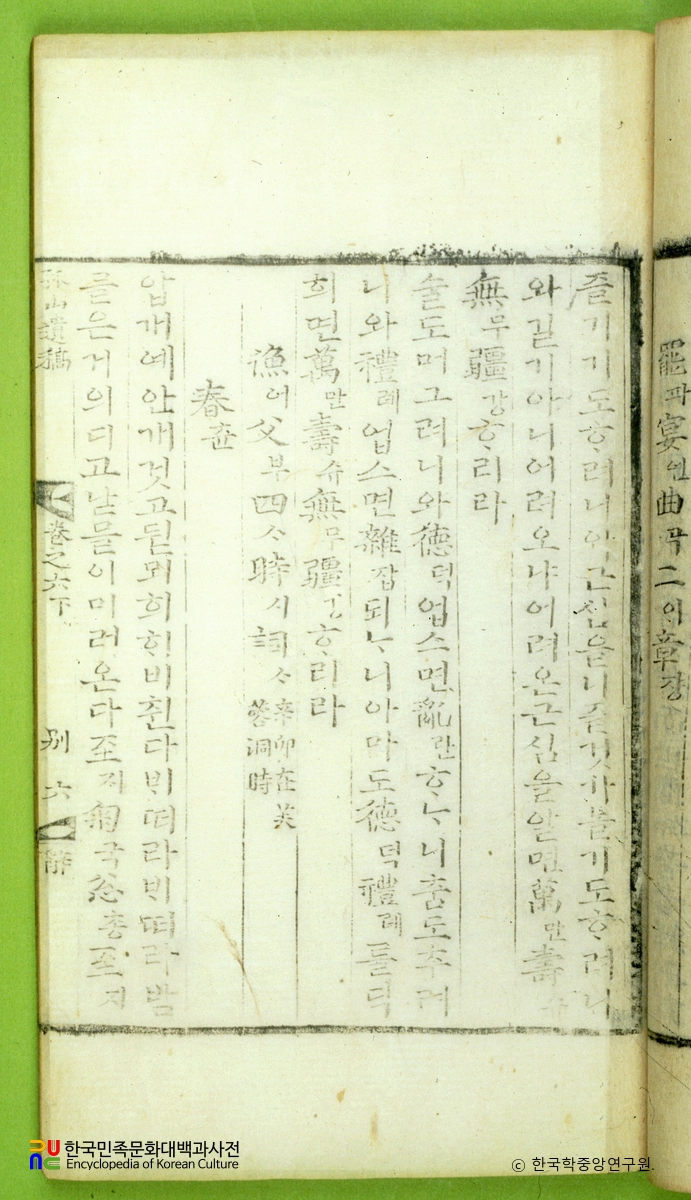 罷파宴연曲곡二이章쟝
즐기기도ᄒᆞ려니와근심을니즐것가놀기도ᄒᆞ려니
와길기아니어려오냐어려온근심을알면萬만壽슈
無무疆강ᄒᆞ리라
술도머그려니와德덕업스면亂란ᄒᆞᄂᆞ니춤도추려
니와禮례업스면雜잡되ᄂᆞ니아마도德덕禮례를딕
희면萬만壽슈無무疆강ᄒᆞ리라
漁어父부四ᄉᆞ時시詞ᄉᆞ 辛卯在芙
蓉洞時
春츈
압개예안개것고뒫뫼희ᄒᆡ비췬다ᄇᆡᄠᅥ라ᄇᆡᄠᅥ라밤
믈은거의디고낟믈이미러온다至지匊국悤총至지
孤山遺稿 卷之六下 別 六 辭
한국민족문화대백과사전
Encyclopedia of Korean Culture
© 한국학중앙연구원.